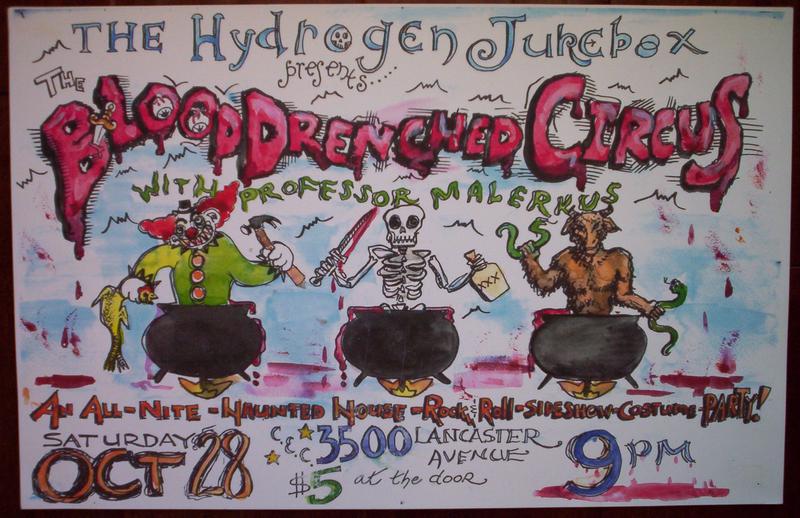 THE Hydrogen Jukebox
presents.....
THE
BLOOD DRENCHED CIRCUS
WITH PROFESSOR MALERKUS
XXX
AN ALL-NITE-HAUNTED HOUSE-ROCK & ROLL-SIDESHOW-COSTUME-PARTY!
SATURDAY
OCT 28
3500 LANCASTER
AVENUE
$5 at the door
9PM